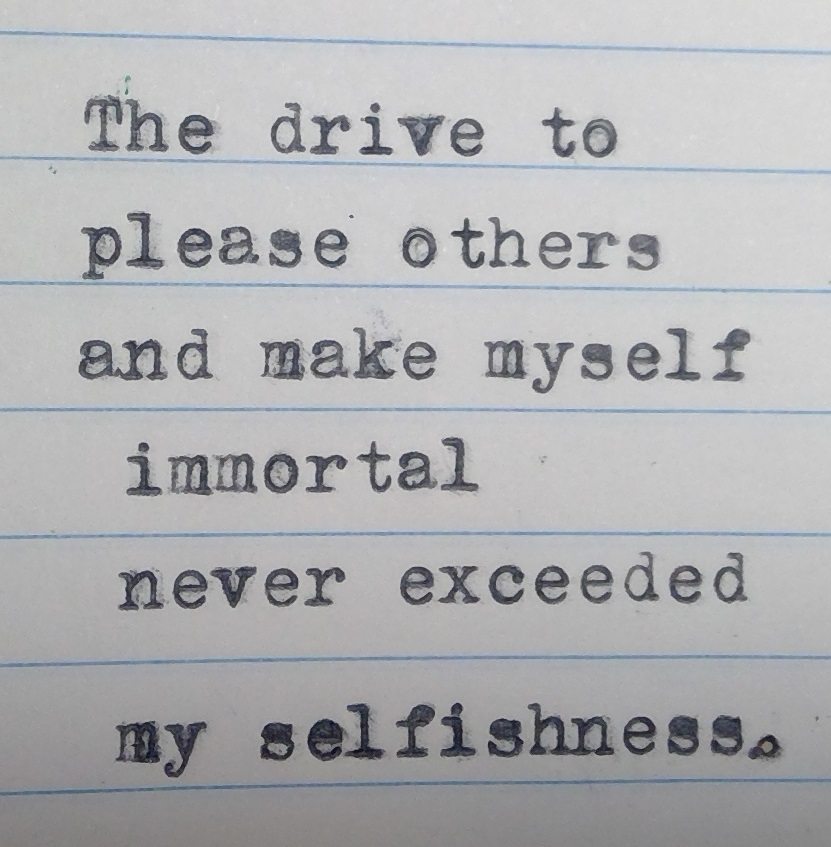 The drive to
please others
and make myself
immortal
never exceeded
my selfishness.